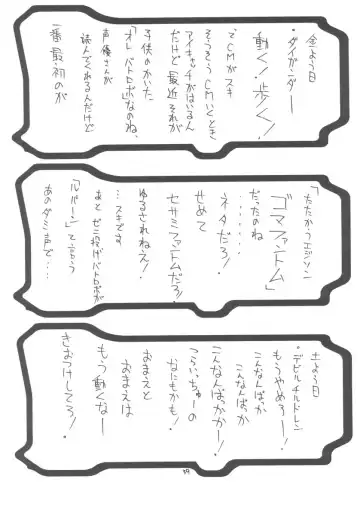 金よう日
・ダイガンダー
動く！歩く！
でCMがスキ
そろそろCMいくとき
アイキャッチがはいるん
だけど最近それが
子供のかいた
「オレバトロボ」なのね、
声優さんが
読んでくれるんだけど
一番最初のが
「たたかうエジソン
ゴマファントム」
だったのね
………
ネタだろ！
せめて
セサミファントムだろ！
ゆるされねえ！
…スキです
あと ゼニ投げバトロボが
「ルパーン」て言う
あのダミ声で…
土よう日
・デビルチルドレン
もうやめろー！
こんなんばっか
こんなんばっか
こんなんばっかかー！
つらいっちゅーの
なにもかも！
おまえと
おまえは
もう動くなー
きおつけしてろ！